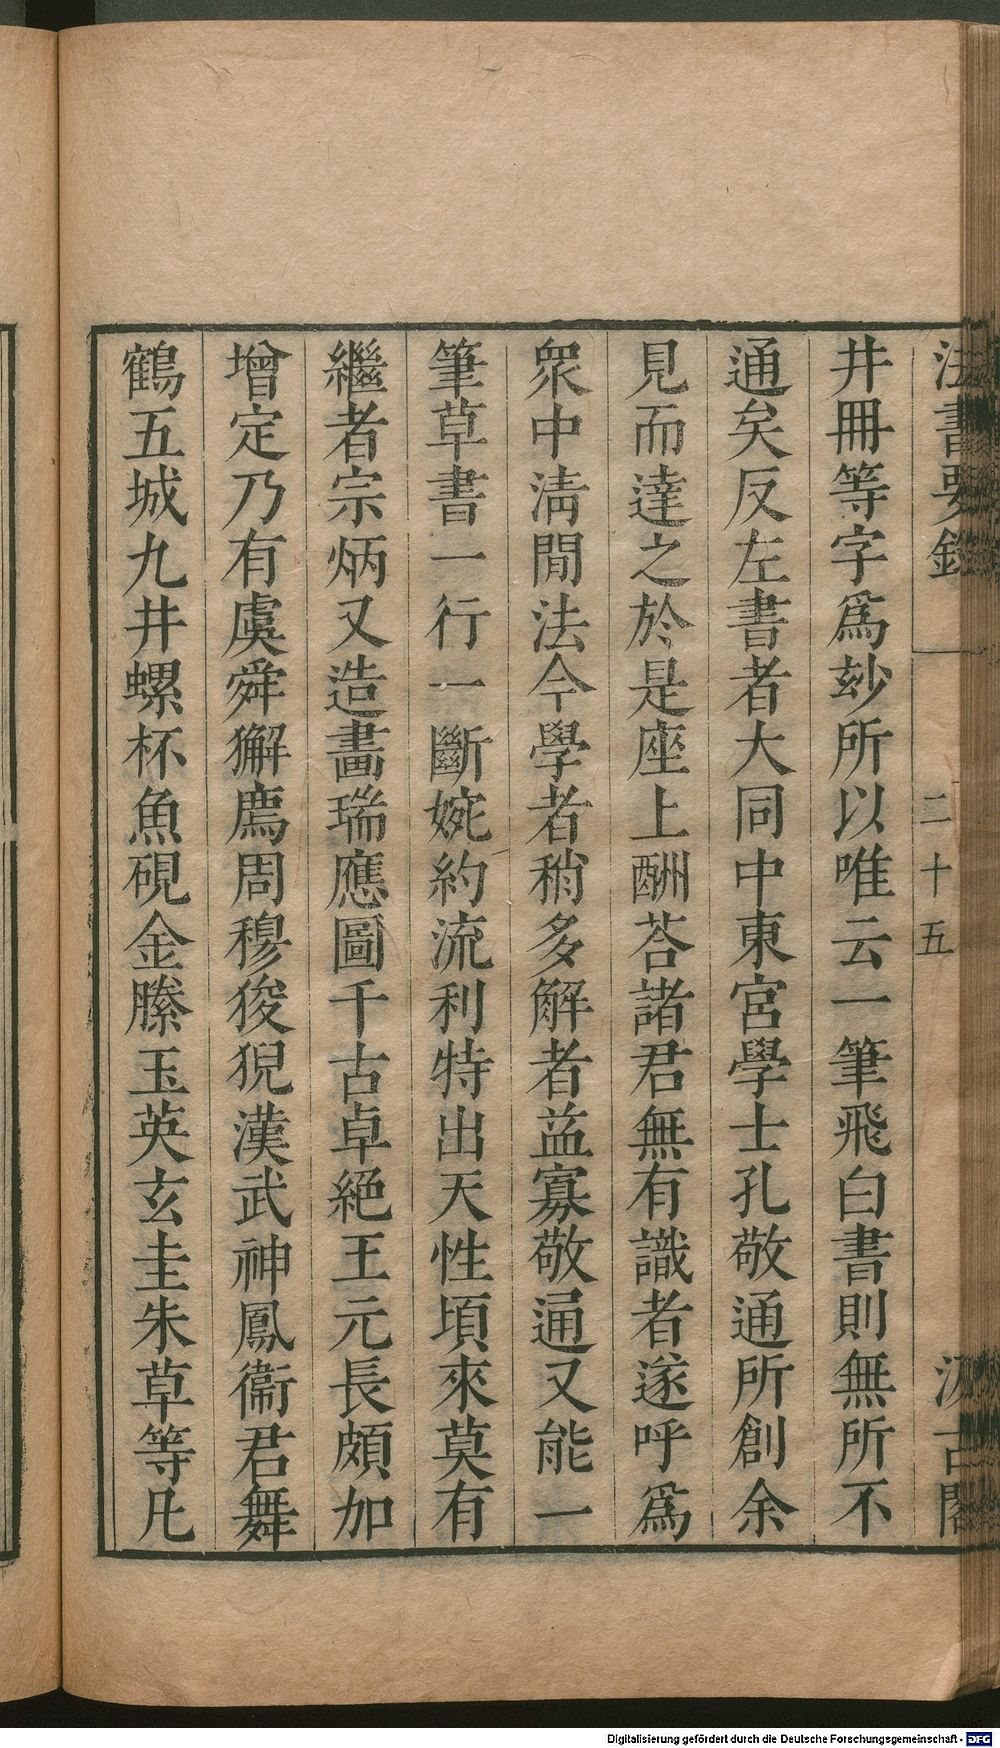 法書要錄
二十五
汲古閣
井冊等字爲玅所以唯云一筆飛白書則無所不
通矣反左書者大同中東宮學士孔敬通所創余
見而達之於是座上酬荅諸君無有識者遂呼爲
衆中淸閒法今學者稍多解者益寡敬通又能一
筆草書一行一斷婉約流利特出天性頃來莫有
繼者宗炳又造畫瑞應圖千古卓絕王元長頗加
增定乃有虞舜獬廌周穆狻猊漢武神鳳衞君舞
鶴五城九井螺杯魚硯金縢玉英玄圭朱草等凡
Digitalisierung gefördert durch die Deutsche Forschungsgemeinschaft - DFG